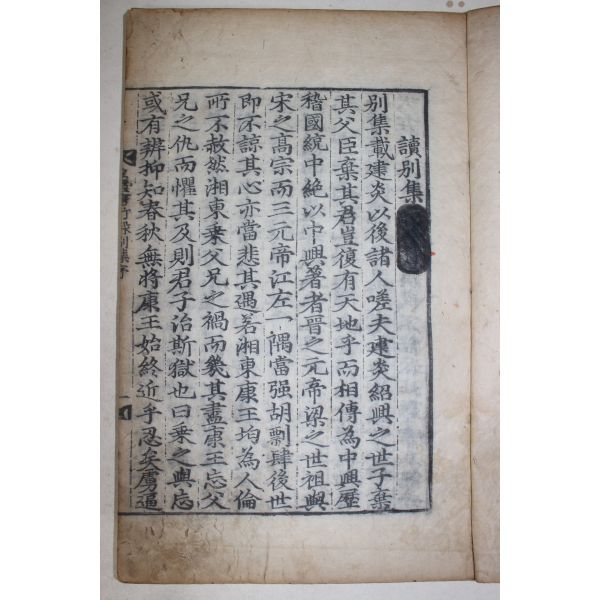 讀別集
別集載建炎以後諸人嗟夫建炎紹興之世子棄
其父臣棄其君豈復有天地乎而相傳為中興歷
稽國統中絶以中興著者晉之元帝梁之世祖與
宋之高宗而三元帝江左一隅當强胡剽肆後世
即不諒其心亦當悲其遇若湘東康王均為人倫
所不赦然湘東乗父兄之禍而幾其盡康王忘父
兄之仇而懼其及則君子治斯獄也曰乗之與忘
或有辨抑知春秋無將康王始終近乎忍矣虜逼